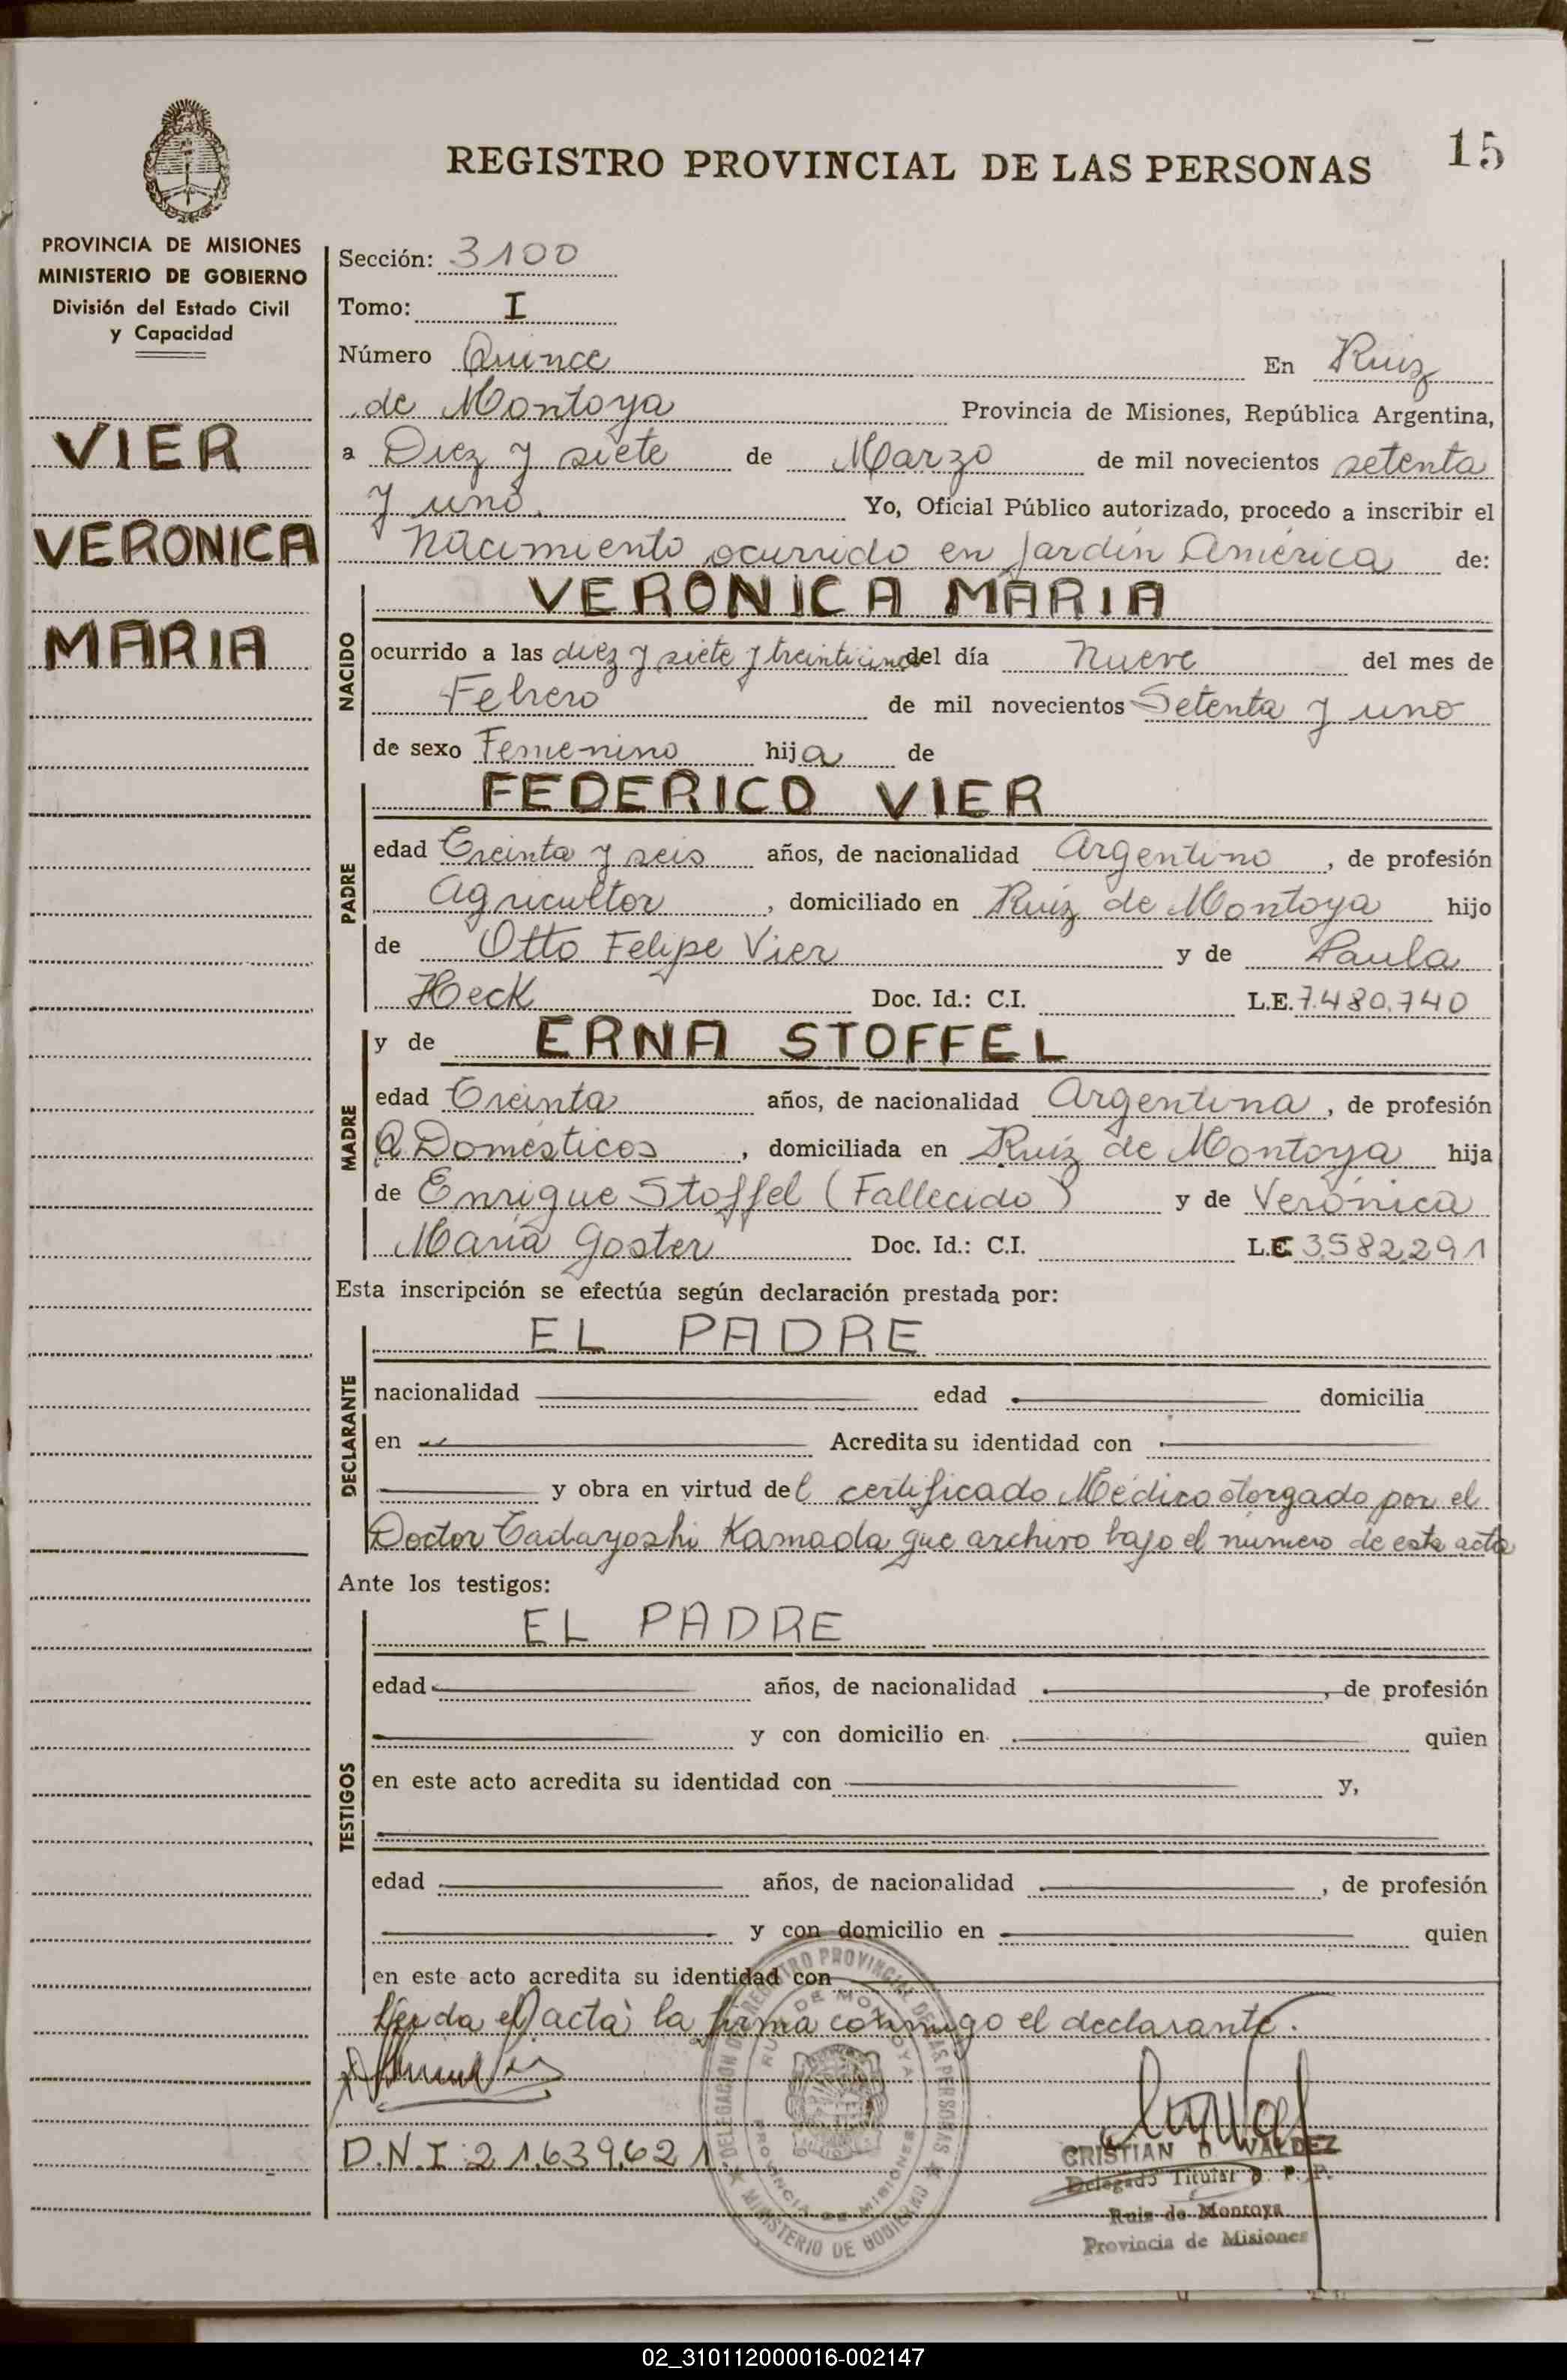 REGISTRO PROVINCIAL DE LAS PERSONAS
15
PROVINCIA DE MISIONES
MINISTERIO DE GOBIERNO
División del Estado Civil
y Capacidad
VIER
VERONICA
MARIA
Sección: 3100
Tomo: I
Número Quince En Ruiz
de Montoya Provincia de Misiones, República Argentina,
a Diez y siete de Marzo de mil novecientos setenta
y uno. Yo, Oficial Público autorizado, procedo a inscribir el
Nacimiento ocurrido en Jardín América de:
VERONICA MARIA
NACIDO
ocurrido a las diez y siete y treinticinco del día nueve del mes de
Febrero de mil novecientos Setenta y uno
de sexo Femenino hija de
FEDERICO VIER
PADRE
edad Treinta y seis años, de nacionalidad Argentino, de profesión
Agricultor, domiciliado en Ruiz de Montoya hijo
de Otto Felipe Vier y de Paula
Heck Doc. Id.: C.I. L.E. 7.480.740
y de ERNA STOFFEL
MADRE
edad Treinta años, de nacionalidad Argentina, de profesión
Q Domésticos, domiciliada en Ruíz de Montoya hija
de Enrique Stoffel (Fallecido) y de Verónica
María Goster Doc. Id.: C.I. L.C 3.582.291
Esta inscripción se efectúa según declaración prestada por:
EL PADRE
DECLARANTE
nacionalidad edad domicilia
en Acredita su identidad con
y obra en virtud del certificado Médico otorgado por el
Doctor Tadayoshi Kamada que archivo bajo el número de esta acta
Ante los testigos:
EL PADRE
TESTIGOS
edad años, de nacionalidad , de profesión
y con domicilio en quien
en este acto acredita su identidad con y,
edad años, de nacionalidad , de profesión
y con domicilio en quien
en este acto acredita su identidad con
Leída el acta la firma conmigo el declarante.
DELEGACION DEL REGISTRO PROVINCIAL DE LAS PERSONAS
RUIZ DE MONTOYA
PROVINCIA DE MISIONES
MINISTERIO DE GOBIERNO
D.N.I. 21.639.621
CRISTIAN D. VALDEZ
Delegado Titular R. P. P.
Ruiz de Montoya
Provincia de Misiones
02_310112000016-002147